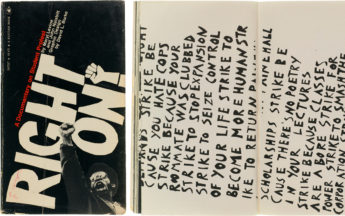 A Documentary on Student Protest
by Maryl Levine
RIGHT
ON!
STRIKE BE
CAUSE YOU HATE COPS
STRIKE BECAUSE YOUR
ROOMMATE WAS CLUBBED
STRIKE TO STOP EXPANSION
STRIKE TO SEIZE CONTROL
OF YOUR LIFE STRIKE TO
BECOME MORE HUMAN STR
IKE TO RETURN PAINE HALL
SCHOLARSHIPS STRIKE BE
CAUSE THERE'S NO POETRY
IN YOUR LECTURES
STRIKE BECAUSE CLASSES
ARE A BORE STRIKE FOR
POWER STRIKE TO SMASH THE
CORPORATION